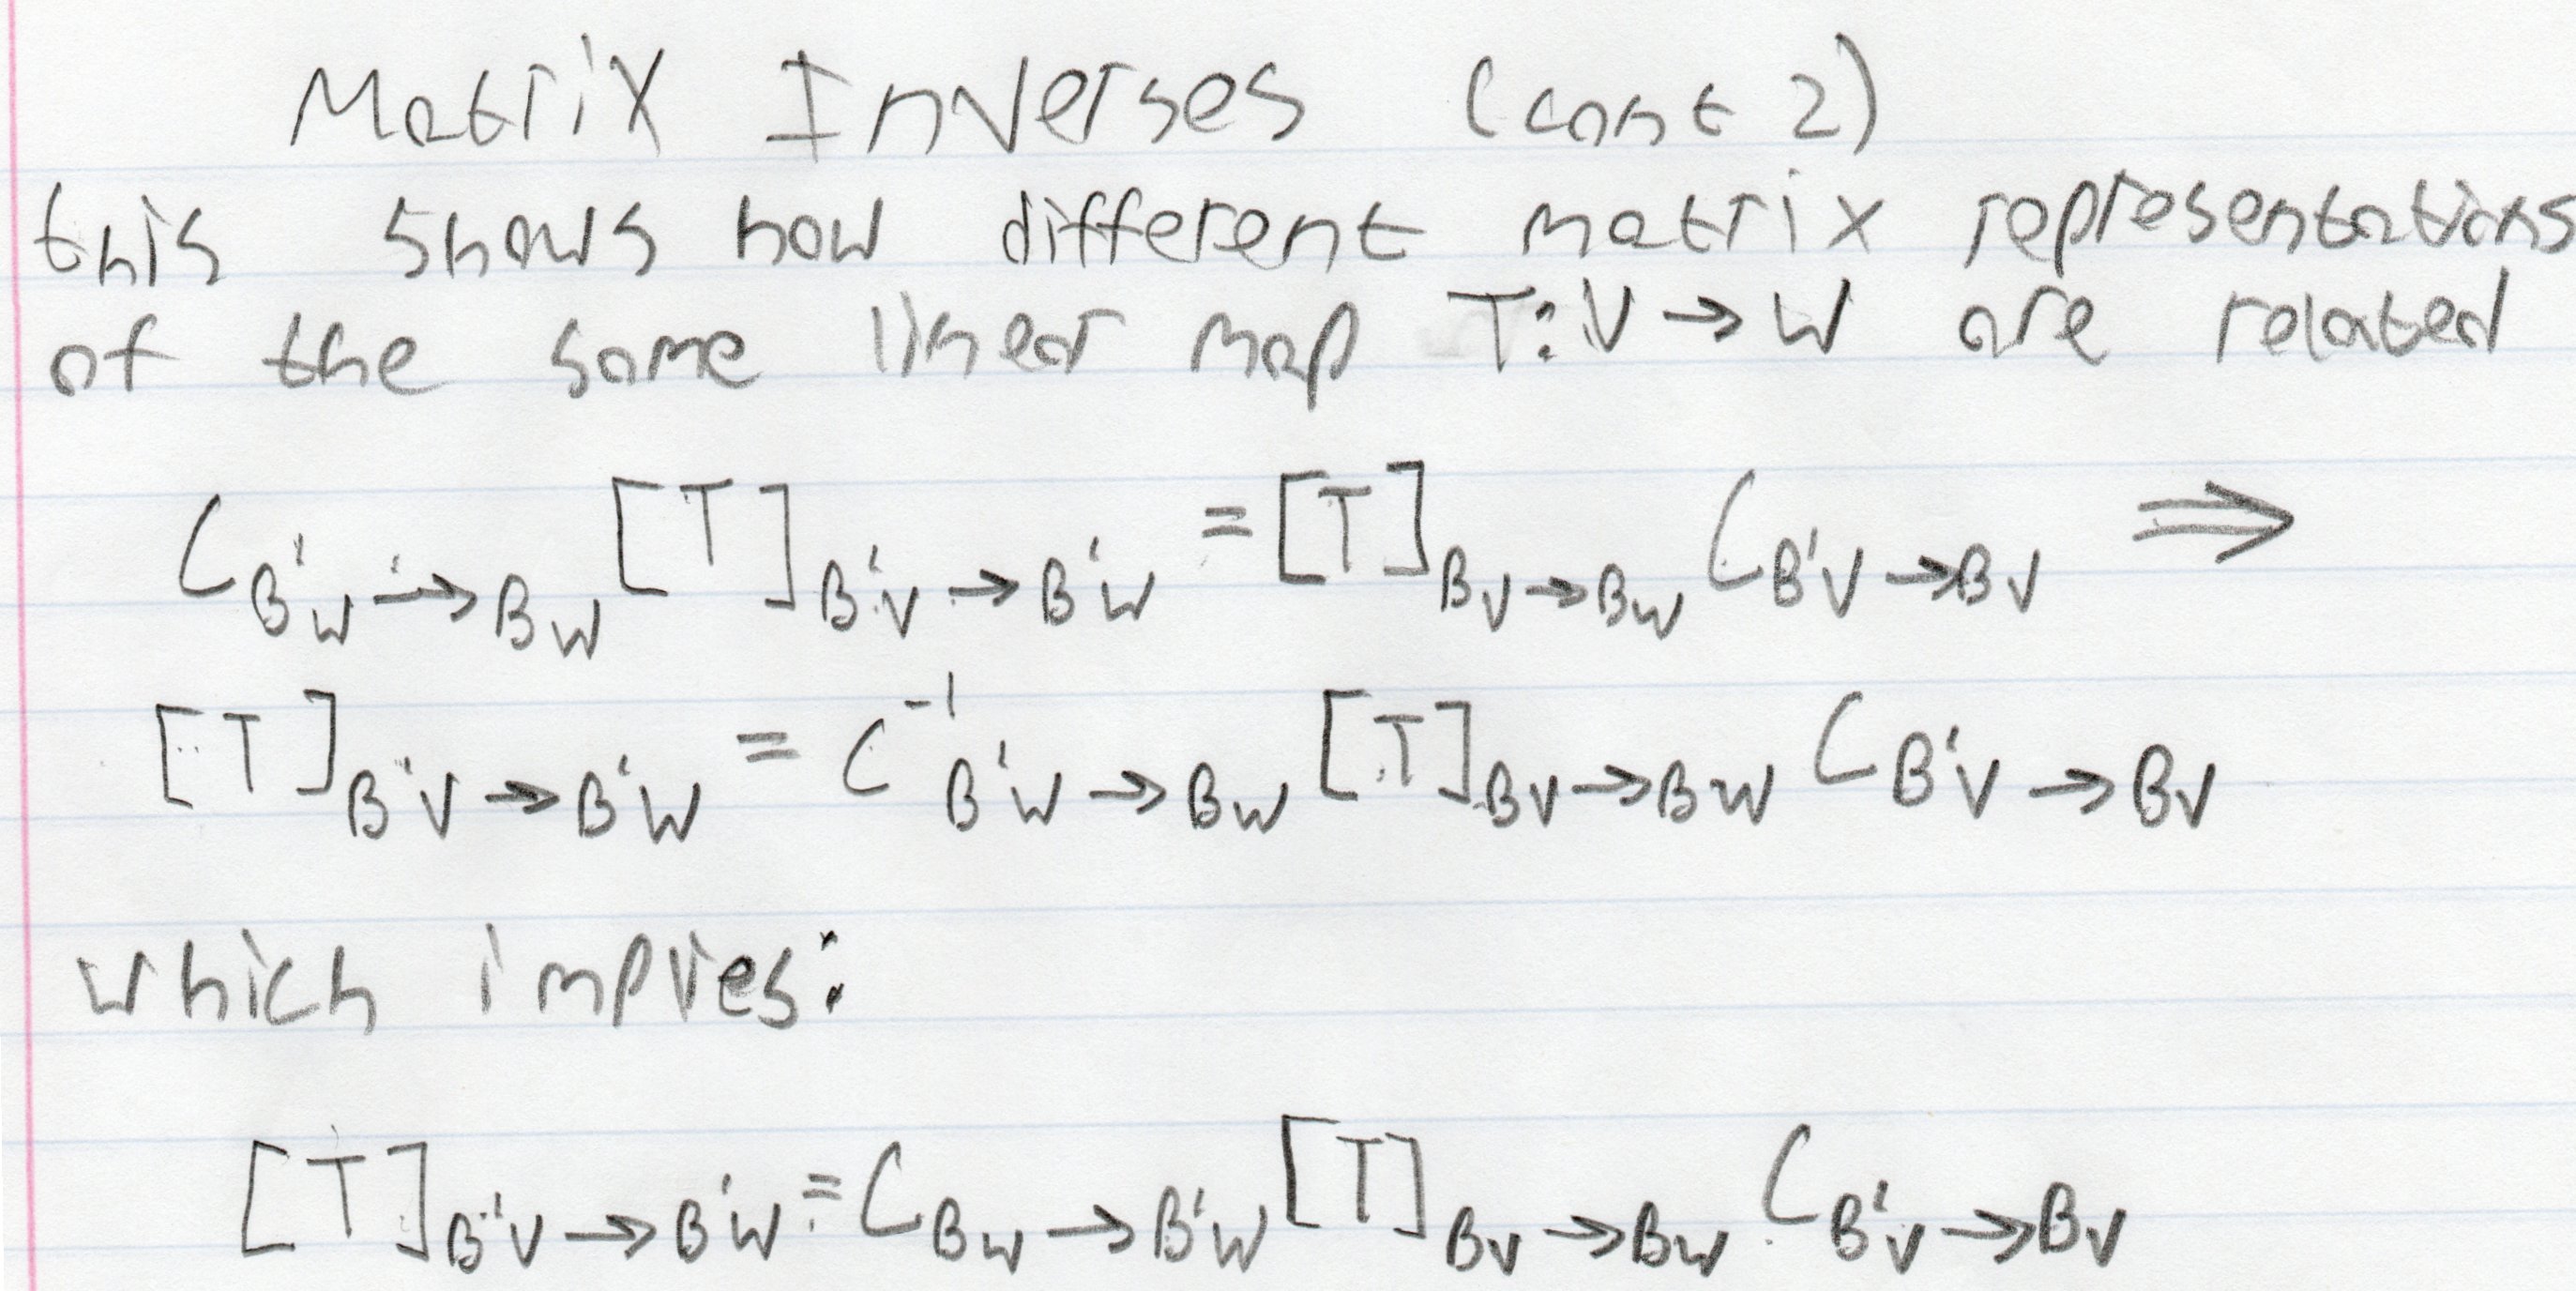 Matrix Inverses (cont 2)
this shows how different matrix representations
of the same linear map T: V → W are related
C_{B'_W → B_W} [T]_{B'_V → B'_W} = [T]_{B_V → B_W} C_{B'_V → B_V} ⇒
[T]_{B'_V → B'_W} = C^{-1}_{B'_W → B_W} [T]_{B_V → B_W} C_{B'_V → B_V}
which implies:
[T]_{B'_V → B'_W} = C_{B_W → B'_W} [T]_{B_V → B_W} C_{B'_V → B_V}